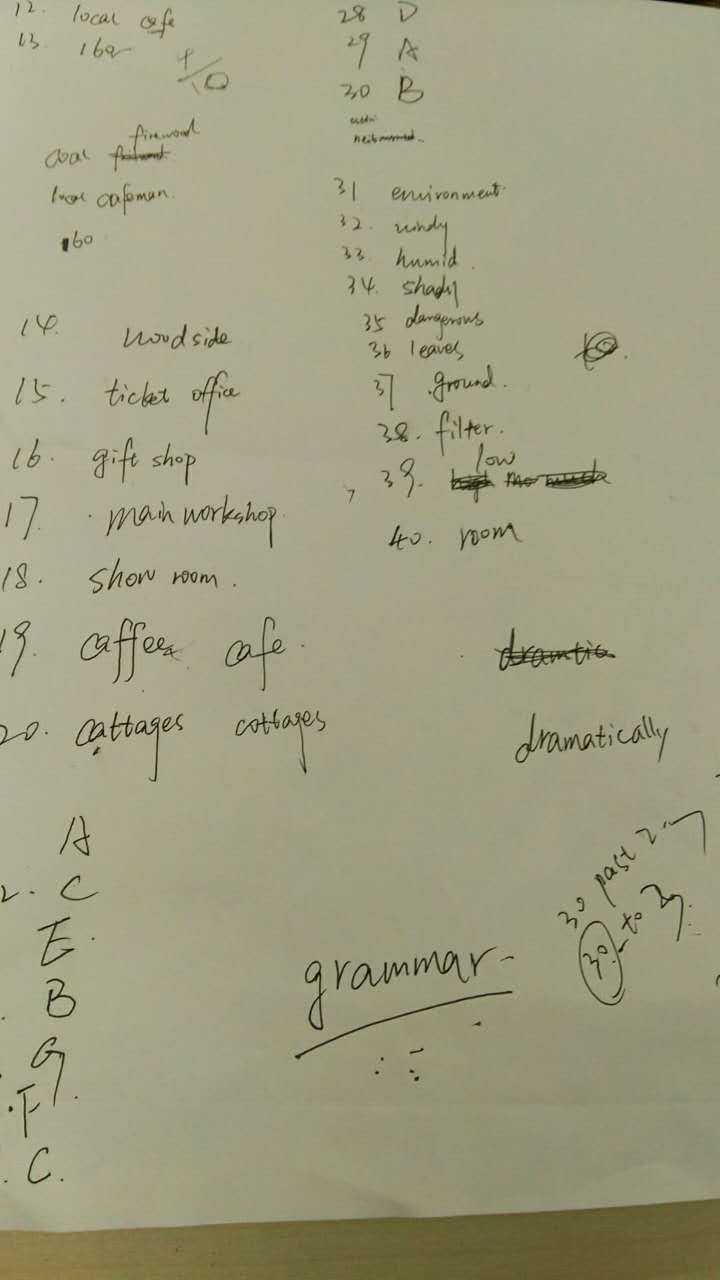 12. local cafe
13. 160
coal firewood
local cafeman.
160
14. woodside
15. ticket office
16. gift shop
17. main workshop.
18. show room.
19. caffee cafe.
20. cattages cottages
A
2. C
E.
B
G
F
C.
28 D
29 A
30 B
31 environment
32. windy
33. humid.
34. shady
35 dangerous
36 leaves
37 ground.
38. filter.
39. low
40. room
dramatic
dramatically
30 past 2.
30. to 3
grammar